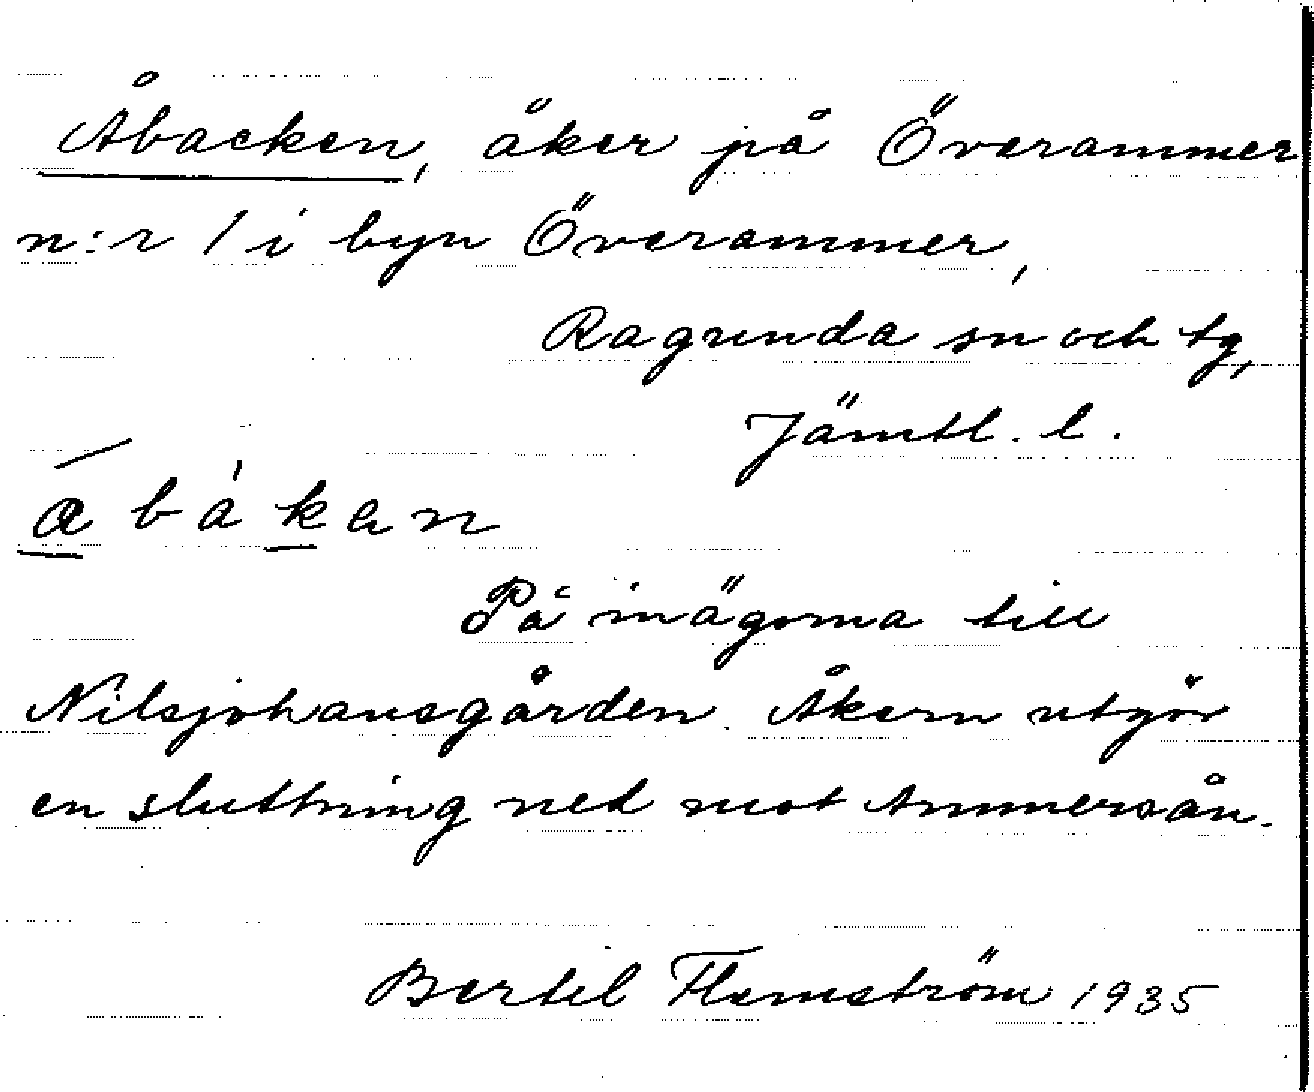 Åbacken, åker på Överammer
n:r 1 i byn Överammer,
Ragunda sn och tg,
Jämtl. l.
På inägorna till
Nilsjohansgården. Åkern utgör
en sluttning ned mot Ammersån.
Bertil Flemström 1935